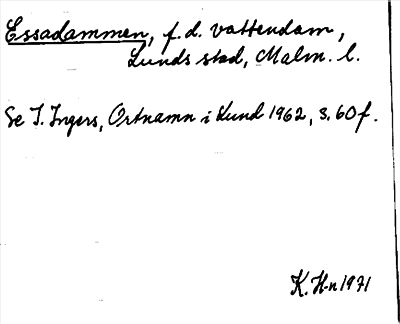 Essadammen, f. d. vattendam,
Lunds stad, Malm. l.
Se I. Ingers, Ortnamn i Lund 1962, s. 60 f.
K. H-n 1971